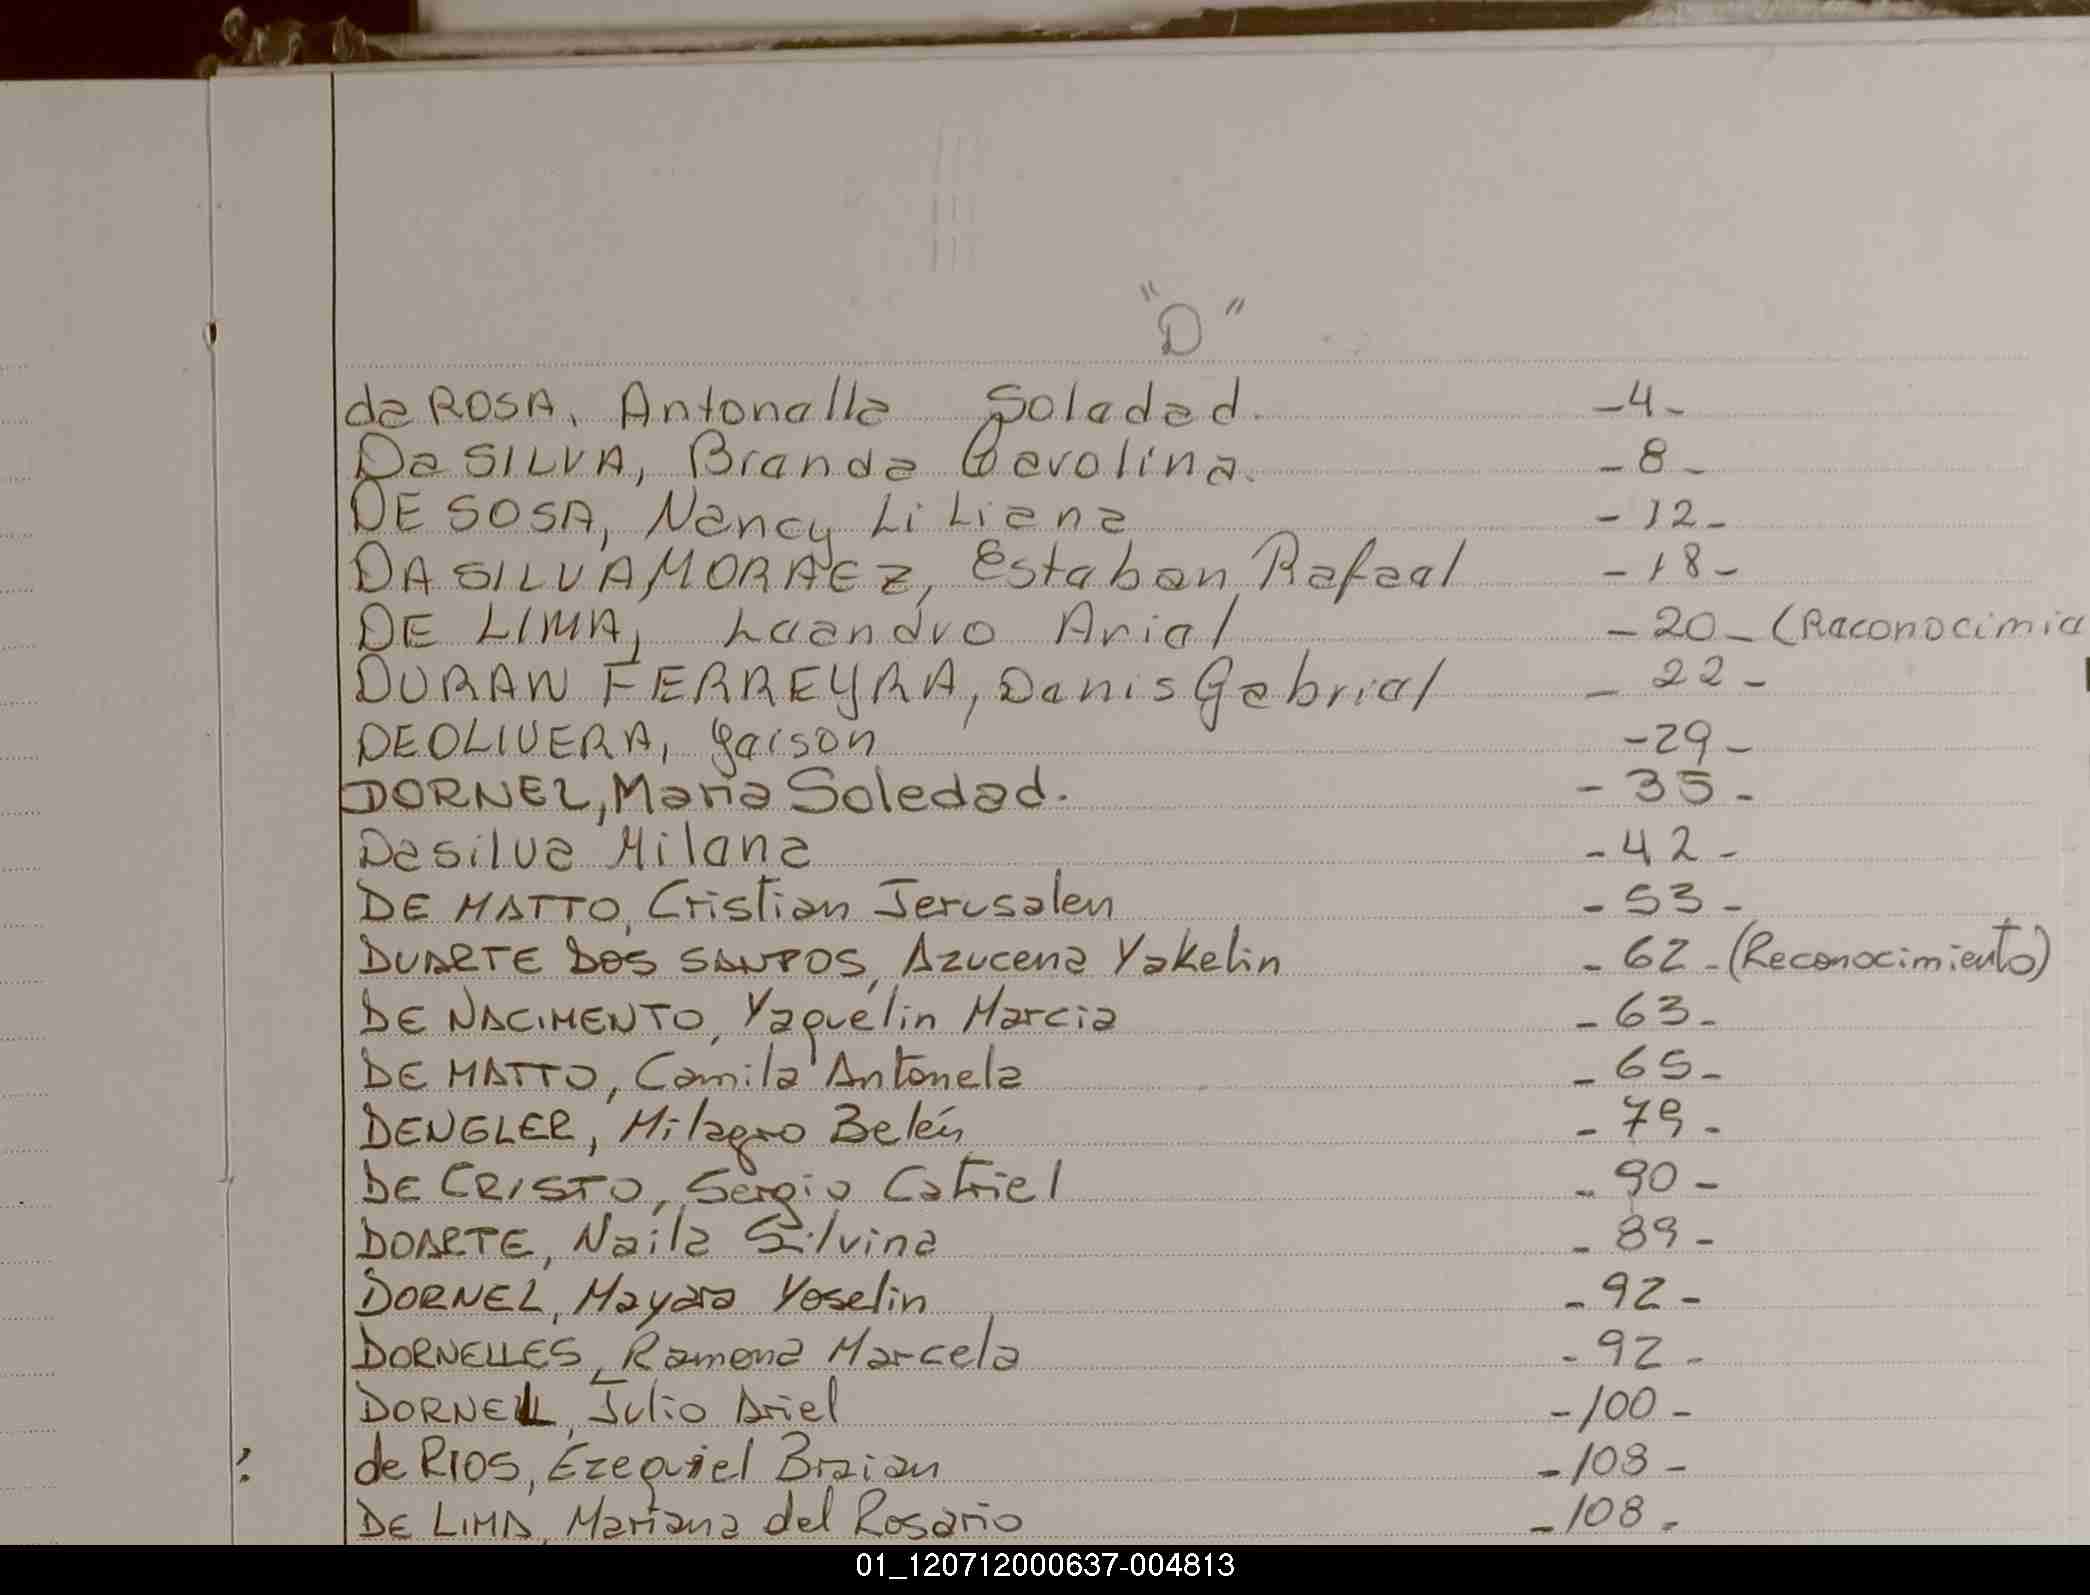 "D"
da ROSA, Antonella Soledad. -4-
Da SILVA, Brenda Carolina. -8-
DE SOSA, Nancy Liliana -12-
DA SILVA MORAEZ, Esteban Rafael -18-
DE LIMA, Leandro Ariel -20- (Reconocimie
DURAN FERREYRA, Denis Gabriel - 22 -
DEOLIVERA, Geison -29-
DORNEL, Maria Soledad. - 35 -
Dasilva Milena -42-
DE MATTO, Cristian Jerusalen - 53 -
DUARTE DOS SANTOS, Azucena Yakelin - 62 - (Reconocimiento)
DE NACIMENTO, Yaquelin Marcia - 63 -
DE MATTO, Camila Antonela - 65 -
DENGLER, Milagro Belén - 79 -
DE CRISTO, Sergio Catriel - 90 -
DOARTE, Naila Silvina - 89 -
DORNEL, Mayara Yoselin - 92 -
DORNELLES, Ramona Marcela - 92 -
DORNELL, Julio Ariel -100-
de RIOS, Ezequiel Braian -108-
DE LIMA, Mariana del Rosario -108-
01_120712000637-004813